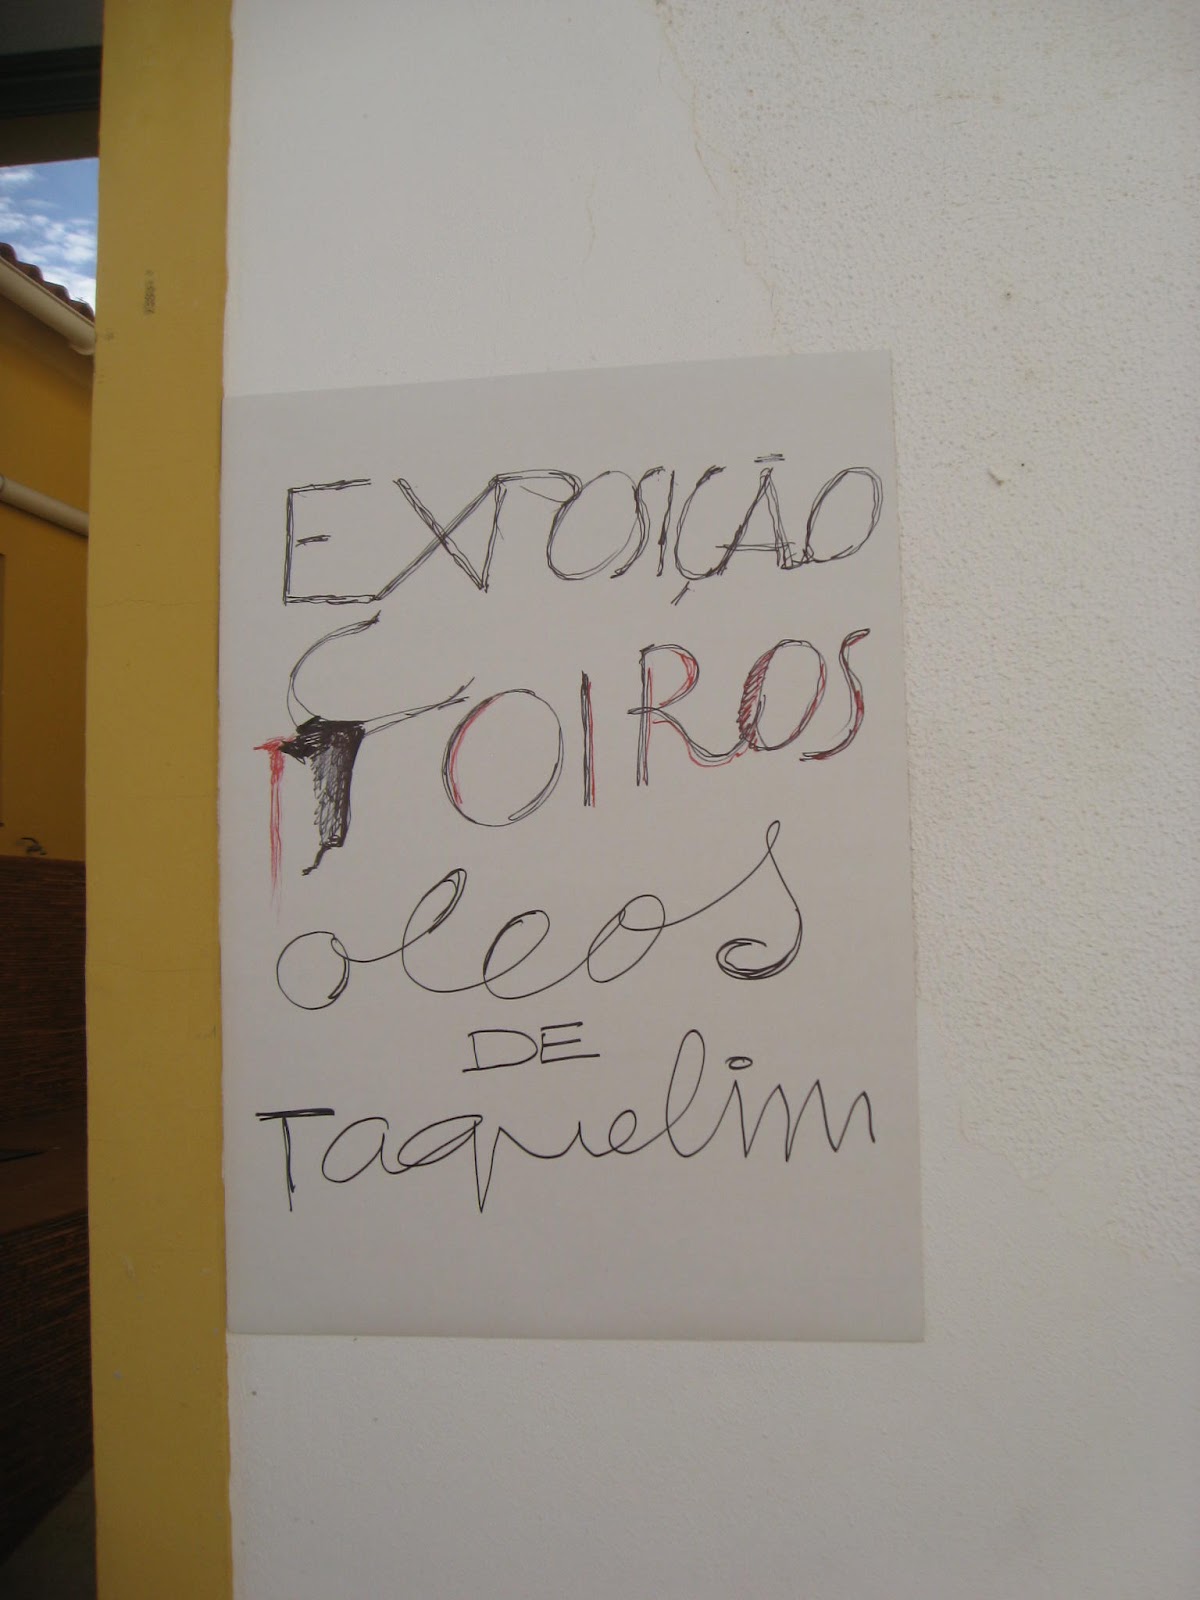 EXPOSIÇÃO
TOIROS
oleos
DE
Taquelim